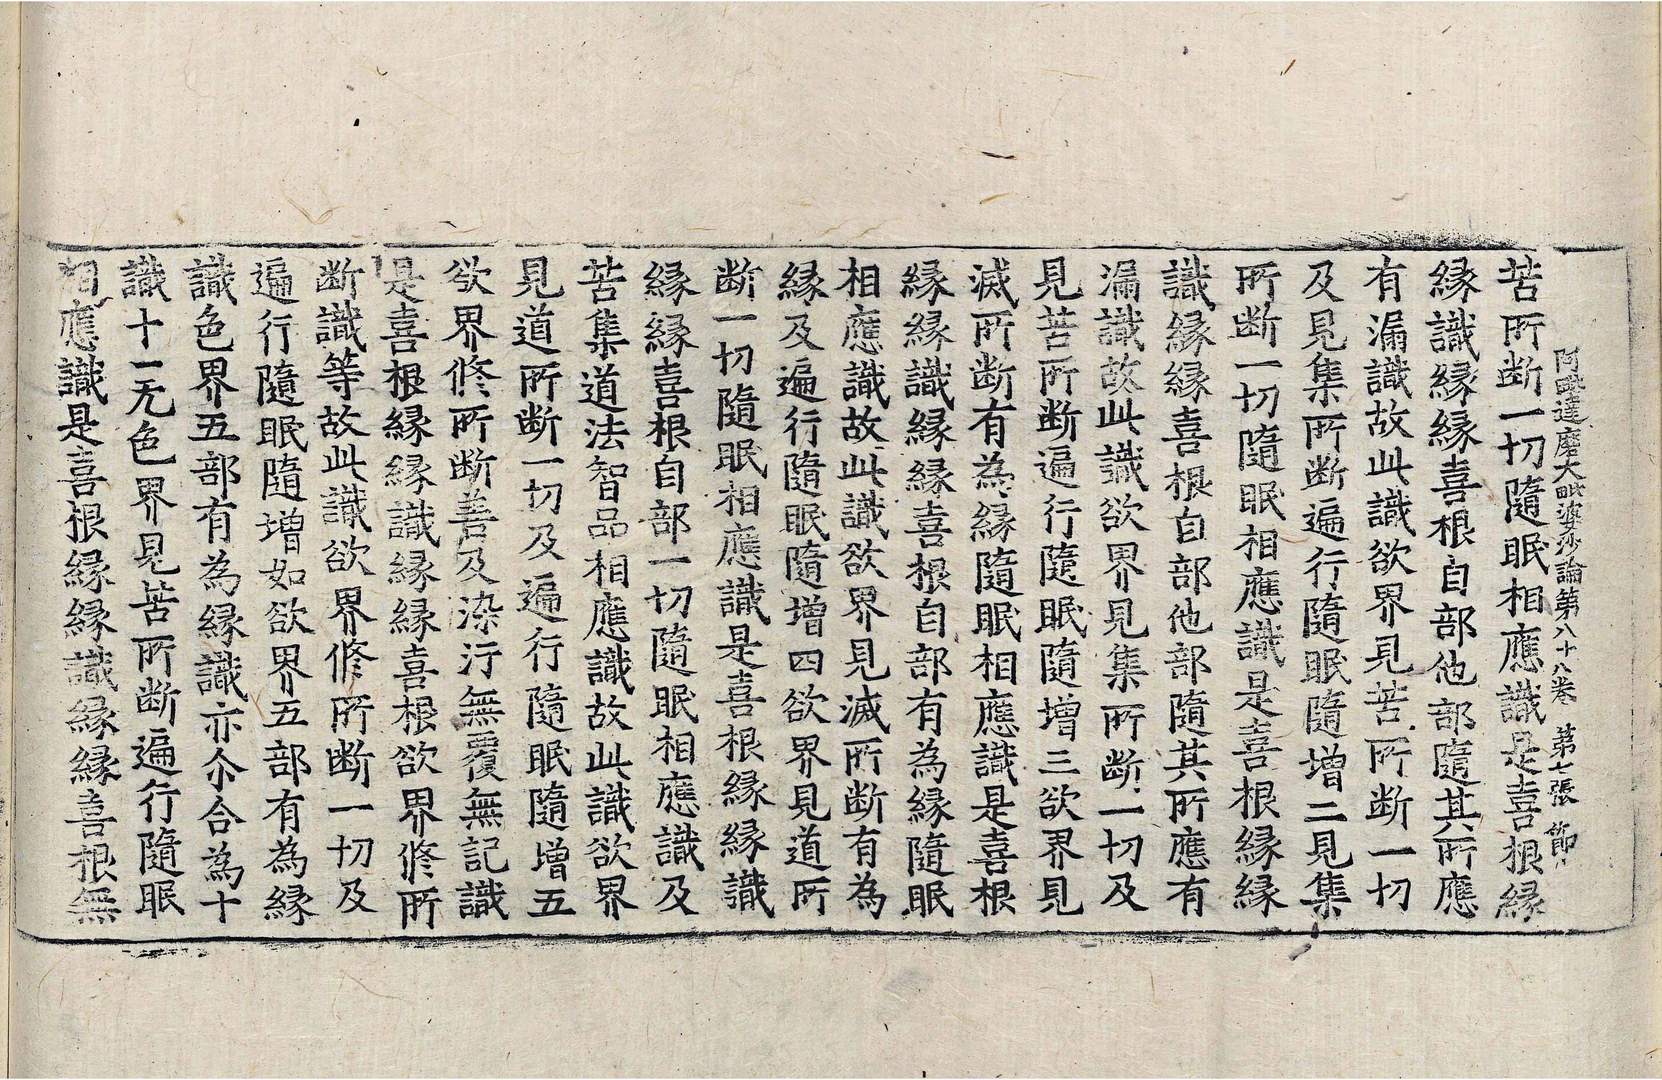 阿毗達磨大毗婆沙論第八十八卷　第七張　節
苦所断一切隨眠相應識是喜根縁
縁識縁縁喜根自部他部隨其所應
有漏識故此識欲界見苦所断一切
及見集所断遍行隨眠隨增二見集
所断一切隨眠相應識是喜根縁縁
識縁縁喜根自部他部隨其所應有
漏識故此識欲界見集所断一切及
見苦所断遍行隨眠隨增三欲界見
滅所断有為縁隨眠相應識是喜根
縁縁識縁縁喜根自部有為縁隨眠
相應識故此識欲界見滅所断有為
縁及遍行隨眠隨增四欲界見道所
断一切隨眠相應識是喜根縁縁識
縁縁喜根自部一切隨眠相應識及
苦集道法智品相應識故此識欲界
見道所断一切及遍行隨眠隨增五
欲界修所断善及染汙無覆無記識
是喜根縁縁識縁縁喜根欲界修所
断識等故此識欲界修所断一切及
遍行隨眠隨增如欲界五部有為縁
識色界五部有為縁識亦尒合為十
識十一无色界見苦所断遍行隨眠
相應識是喜根縁縁識縁縁喜根無